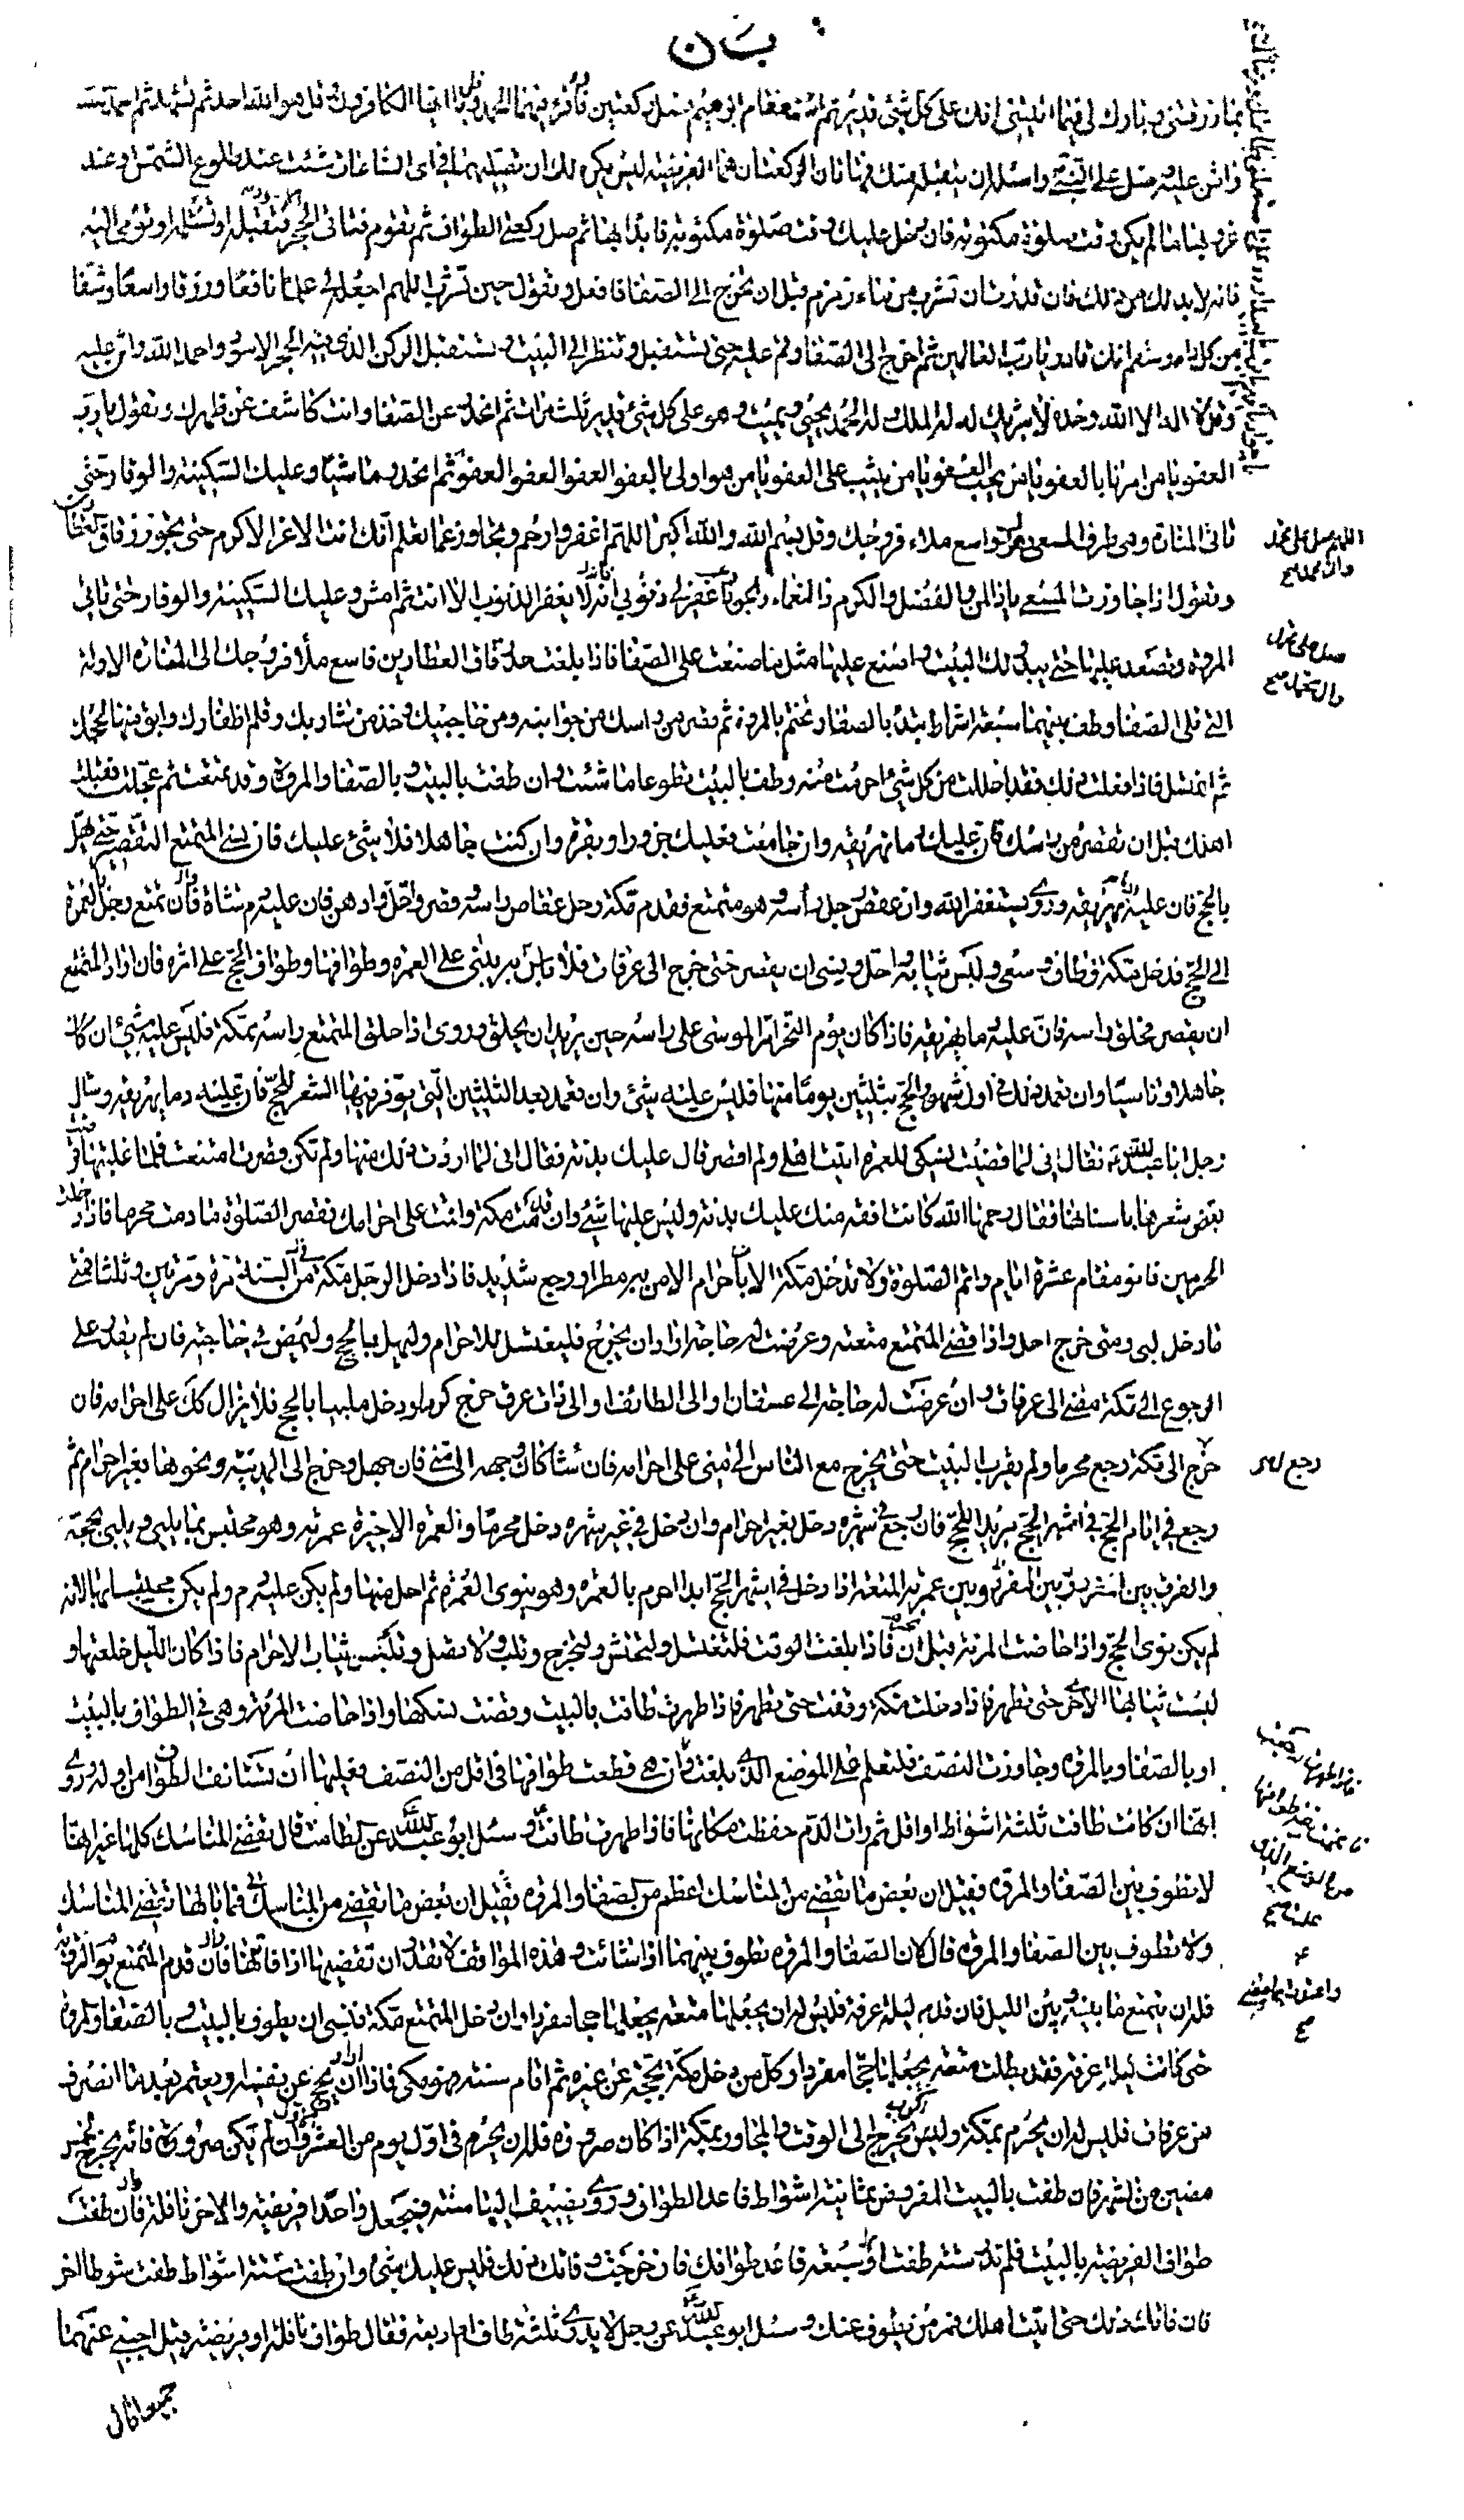 بما رزقتنى وبارك لى فيما اتيتنى انك على كل شئ قدير ثم ائت مقام ابرهيم فصل ركعتين واقرء فيهما الحمد وقل يا ايها الكافرون وقل هو الله احد ثم تشهد ثم احمد الله
واثن عليه وصل على النبى واسئله ان يتقبله منك فهاتان الركعتان هما الفريضة ليس يكره لك ان تصليهما فى اى الساعات شئت عند طلوع الشمس وعند
غروبها ما لم يكن وقت صلوة مكتوبة فان دخل عليك وقت صلوة مكتوبة فابدأ بها ثم صل ركعتى الطواف ثم تقوم فتاتى الحجر فتقبله او تستلمه او تومى اليه
فانه لا بد لك من ذلك فان قدرت ان تشرب من ماء زمزم قبل ان تخرج الى الصفا فافعل وتقول حين تشرب اللهم اجعله لى علما نافعا ورزقا واسعا وشفاء
من كل داء وسقم انك قادر يا رب العالمين ثم اخرج الى الصفا وقم عليه حتى تستقبل وتنظر الى البيت وتستقبل الركن الذى فيه الحجر الاسود واحمد الله واثن عليه
وقل لا اله الا الله وحده لا شريك له له الملك وله الحمد يحيى ويميت وهو على كل شئ قدير ثلث مرات ثم انحدر عن الصفا وانت كاشف عن ظهرك وتقول يا رب
العفو يا من امر بالعفو يا من يحب العفو يا من يثيب على العفو يا من هو اولى بالعفو العفو العفو العفو ثم انحدر ماشيا وعليك السكينة والوقار حتى
تاتى المنارة وهى طرف المسعى فاسع ملاء فروجك وقل بسم الله والله اكبر اللهم اغفر وارحم وتجاوز عما تعلم انك انت الاعز الاكرم حتى تجوز زقاق العطارين
وتقول اذا جاوزت المسعى يا ذا المن والفضل والكرم والنعماء والجود اغفر لى ذنوبى انه لا يغفر الذنوب الا انت ثم امش وعليك السكينة والوقار حتى تاتى
المروة وتصعد عليها حتى يبدو لك البيت واصنع عليها مثل ما صنعت على الصفا فاذا بلغت حد زقاق العطارين فاسع ملأ فروجك الى المنارة الاولة
التى تلى الصفا وطف بينهما سبعة اشواط تبدأ بالصفا وتختم بالمروة ثم قصر من راسك من جوانبه ومن حاجبيك وخذ من شاربك وقلم اظفارك وابق منها لحجك
ثم اغتسل فاذا فعلت ذلك فقد احللت من كل شئ احرمت منه وطف بالبيت تطوعا ما شئت وان طفت بالبيت وبالصفا والمروة وقد تمتعت ثم عجلت فقبلت
اهلك قبل ان تقصر من راسك فان عليك دما تهريقه وان جامعت فعليك جزورا او بقرة وان كنت جاهلا فلا شئ عليك فان نسى المتمتع التقصير حتى يهل
بالحج فان عليه دم يهريقه وروى يستغفر الله وان عقص رجل رأسه وهو متمتع فقدم مكة وحل عقاص راسه وقصر واحل وادهن فان عليه دم شاة وان تمتع رجل بالعمرة
الى الحج فدخل مكة وطاف وسعى ولبس ثيابه واحل ونسى ان يقصر حتى خرج الى عرفات فلا باس به يبنى على العمرة وطوافها وطواف الحج على اثره فان اراد المتمتع
ان يقصر فحلق راسه فان عليه دما يهريقه فاذا كان يوم النحر امر الموسى على راسه حين يريد ان يحلق وروى اذا حلق المتمتع راسه بمكة فليس عليه شئ ان كان
جاهلا او ناسيا وان تعمد ذلك فى اول شهور الحج بثلثين يوما منها فليس عليه شئ وان تعمد بعد الثلثين التى يوفر فيها الشعر للحج فان عليه دما يهريقه وسال
رجل ابا عبد الله فقال انى لما قضيت نسكى للعمرة اتيت اهلى ولم اقصر قال عليك بدنة فقال انى لما اردت ذلك منها ولم تكن قصرت امتنعت فلما غلبتها قرضت
بعض شعرها باسنانها فقال رحمها الله كانت افقه منك عليك بدنة وليس عليها شئ وان قدمت مكة وانت على احرامك تقصر الصلوة ما دمت محرما فاذا دخلت
الحرمين فانو مقام عشرة ايام واتم الصلوة ولا تدخل مكة الا باحرام الا من به مطر او وجع شديد فاذا دخل الرجل مكة فى السنة مرة ومرتين وثلثا فمتى
ما دخل لبى ومتى خرج احل واذا قضى المتمتع متعته وعرضت له حاجة اراد ان يخرج فليغتسل للاحرام وليهل بالحج وليمض فى حاجته فان لم يقدر على
الرجوع الى مكة مضى الى عرفات وان عرضت له حاجة الى عسفان او الى الطائف او الى ذات عرق خرج محرما ودخل ملبيا بالحج فلا يزال كك على احرامه فان
خرج الى مكة رجع محرما ولم يقرب البيت حتى يخرج مع الناس الى منى على احرامه فان شاء كان وجهه الى منى فان جهل وخرج الى المدينة ونحوها بغير احرام ثم
رجع فى ايام الحج فى اشهر الحج يريد الحج فان رجع فى شهره دخل بغير احرام وان دخل فى غير شهره دخل محرما والعمرة الاخيرة عمرته وهو محتبس بها يلبى ويلبى بحجة
والفرق بين المفردة وبين عمرة المتعة اذا دخل فى اشهر الحج ابدا احرم بالعمرة وهو ينوى العمرة ثم احل منها ولم يكن عليه دم ولم يكن محتبسا بها لانه
لم يكن نوى الحج واذا حاضت المرئة قبل ان فاذا بلغت الوقت فلتغتسل ولتحتش ولتخرج وتلب ولا تصل وتلبس ثياب الاحرام فاذا كان الليل خلعتها و
لبست ثيابها الاخرى حتى تطهر فاذا دخلت مكة وقفت حتى تطهر فاذا طهرت طافت بالبيت وقضت نسكها واذا حاضت المرئة وهى فى الطواف بالبيت
او بالصفا وبالمروة وجاوزت النصف فلتعلم على الموضع الذى بلغت وان هى قطعت طوافها فى اقل من النصف فعليها ان تستانف الطواف من اوله وروى
انها ان كانت طافت ثلثة اشواط او اقل ثم رات الدم حفظت مكانها فاذا طهرت طافت وسئل ابو عبد الله عن الطامث قال تقضى المناسك كلها غير انها
لا تطوف بين الصفا والمروة فقيل ان بعض ما تقضى من المناسك اعظم من الصفا والمروة فما بالها تقضى المناسك
ولا تطوف بين الصفا والمروة قال لان الصفا والمروة تطوف بينهما اذا شائت وهذه المواقف لا تقدر ان تقضيها اذا فاتتها فان قدم المتمتع يوم التروية
فله ان يتمتع ما بينه وبين الليل فان قدم ليلة عرفة فليس له ان يجعلها متعة يجعلها حجا مفردا وان دخل المتمتع مكة فنسى ان يطوف بالبيت وبالصفا والمروة
حتى كانت ليلة عرفة فقد بطلت متعته يجعلها حجا مفردا وكل من دخل مكة بحجة عن غيره ثم اقام سنة فهو مكى فاذا اراد ان يحج عن نفسه او يعتمر بعد ما انصرف
من عرفات فليس له ان يحرم بمكة وليس يخرج الى الوقت والمجاور بمكة اذا كان صرورة فله ان يحرم فى اول يوم من العشر وان لم يكن صرورة فانه يخرج لخمس
مضين من الشهر فان طفت بالبيت المفروض ثمانية اشواط فاعد الطواف وروى يضيف اليها ستة فيجعل واحدا فريضة والاخر نافلة وان طفت
طواف الفريضة بالبيت فلم تدر ستة طفت او سبعة فاعد طوافك فان خرجت وفاتك ذلك فليس عليك شئ وان طفت ستة اشواط طفت شوطا اخر
فان فاتك ذلك حتى اتيت اهلك فمر من يطوف عنك وسئل ابو عبد الله عن رجل لا يدرى ثلثة طاف ام اربعة فقال طواف نافلة او فريضة قيل اجبنى عنهما
جميعا قال
اللهم صل على محمد
وال محمد صح
صل على محمد
وال محمد صح